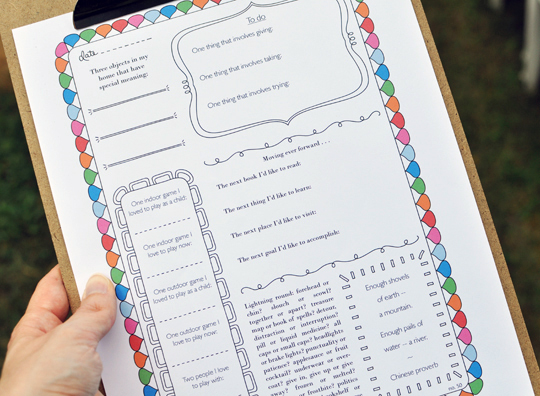 date
Three objects in my
home that have
special meaning:
To do
One thing that involves giving:
One thing that involves taking:
One thing that involves trying:
Moving ever forward . . .
The next book I'd like to read:
The next thing I'd like to learn:
The next place I'd like to visit:
The next goal I'd like to accomplish:
One indoor game I
loved to play as a child:
One indoor game I
love to play now:
One outdoor game I
loved to play as a child:
One outdoor game I
love to play now:
Two people I love
to play with:
Lightning round: forehead or
chin? slouch or scowl?
together or apart? treasure
map or book of spells? detour,
distraction or interruption?
pill or liquid medicine? all
caps or small caps? headlights
or brake lights? punctuality or
patience? applesauce or fruit
cocktail? underwear or over-
coat? give in, give up or give
away? frozen or melted?
or frostbite? politics
bookshelf or
Enough shovels
of earth —
a mountain.
Enough pails of
water — a river.
—
Chinese proverb
no. 50